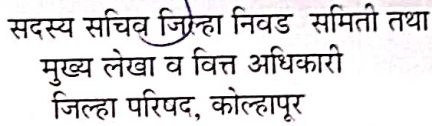 सदस्य सचिव जिल्हा निवड समिती तथा
मुख्य लेखा व वित्त अधिकारी
जिल्हा परिषद, कोल्हापूर